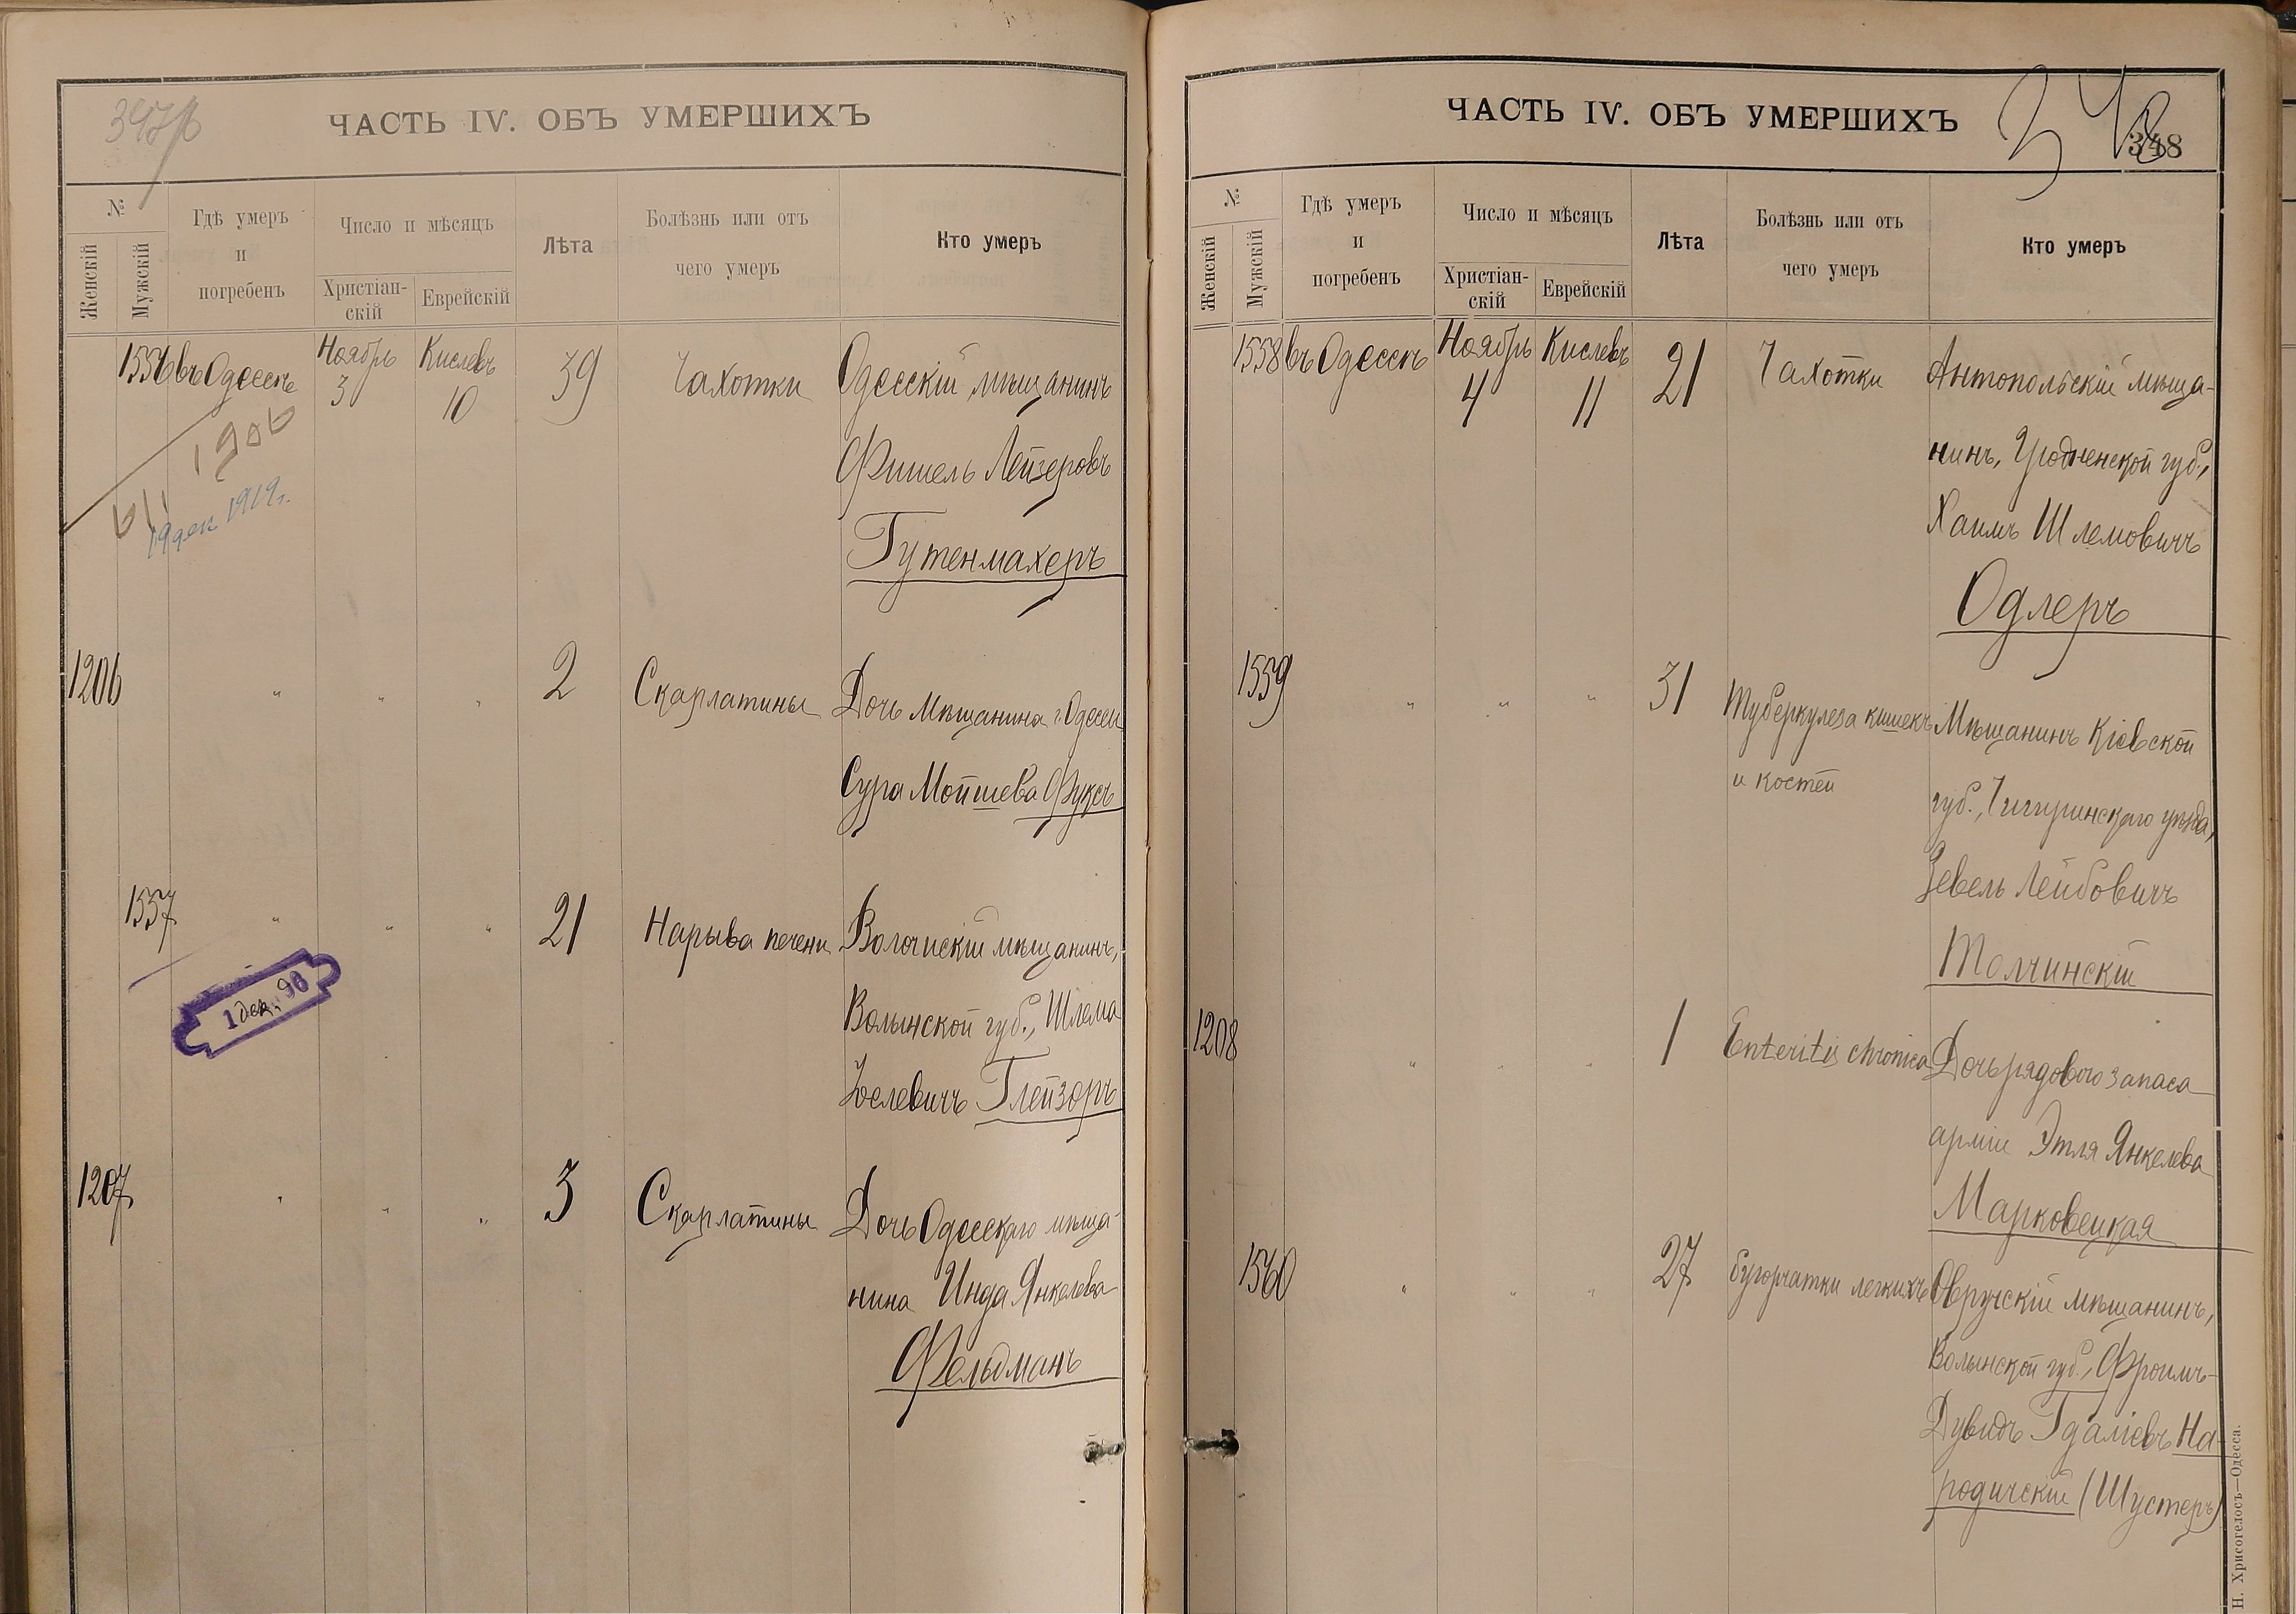 ЧАСТЬ IV. ОБЪ УМЕРШИХЪ
№
Женскій
Мужскій
Гдѣ умеръ
и
погребенъ
Число и мѣсяцъ
Христіан-
скій
Еврейскій
Лѣта
Болѣзнь или отъ
чего умеръ
Кто умеръ
1556 въ Одессѣ Ноябрь 3 Кислевъ 10 39 Чахотки Одесскій мѣщанинъ
Фишель Лейзеровъ
Гутенмахеръ
1906
19 дек 1912г.
1206 " " " 2 Скарлатины Дочь Мѣщанина г. Одессы
Сура Мойшева Фуксъ
1557 " " " 21 Нарыва печени Волочискій мѣщанинъ,
Волынской губ., Шлема
Іослевичъ Глейзоръ
1 дек. 98
1207 " " " 3 Скарлатины Дочь Одесскаго мѣща-
нина Инда Янкелева
Фельдманъ
ЧАСТЬ IV. ОБЪ УМЕРШИХЪ
348
348
№
Женскій
Мужскій
Гдѣ умеръ
и
погребенъ
Число и мѣсяцъ
Христіан-
скій
Еврейскій
Лѣта
Болѣзнь или отъ
чего умеръ
Кто умеръ
1558 въ Одессѣ Ноябрь 4 Кислевъ 11 21 Чахотки Антопольскій мѣща-
нинъ, Гродненской губ.,
Хаимъ Шлемовичъ
Одлеръ
1559 " " " 31 Туберкулеза кишекъ Мѣщанинъ Кіевской
и костей губ., Чигиринскаго уѣзда,
Зевель Лейбовичъ
Толчинскій
1208 " " " 1 Enteritis chronica Дочь рядового запаса
арміи Этля Янкелева
Марковецкая
1560 " " " 27 Бугорчатки легкихъ Овручскій мѣщанинъ,
Волынской губ., Фроимъ-
Дувидъ Гдаліевъ На-
родичскій (Шустеръ)
Н. Хрисогелосъ—Одесса.